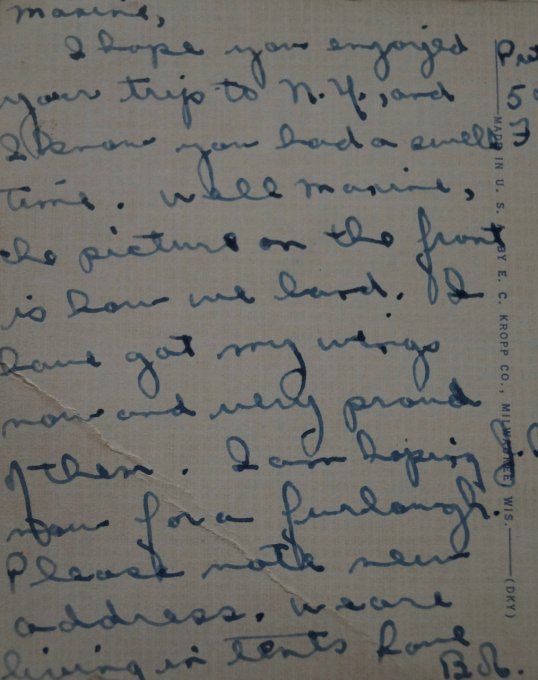 Maxine,
I hope you enjoyed
your trip to N.Y., and
I know you had a swell
time. Well Maxine,
the picture on the front
is how we land. I
have got my wings
now and very proud
of them. I am hoping
now for a furlough.
Please note new
address. We are
living in tents
Bob.
MADE IN U. S. A. BY E. C. KROPP CO., MILWAUKEE, WIS. (DKY)